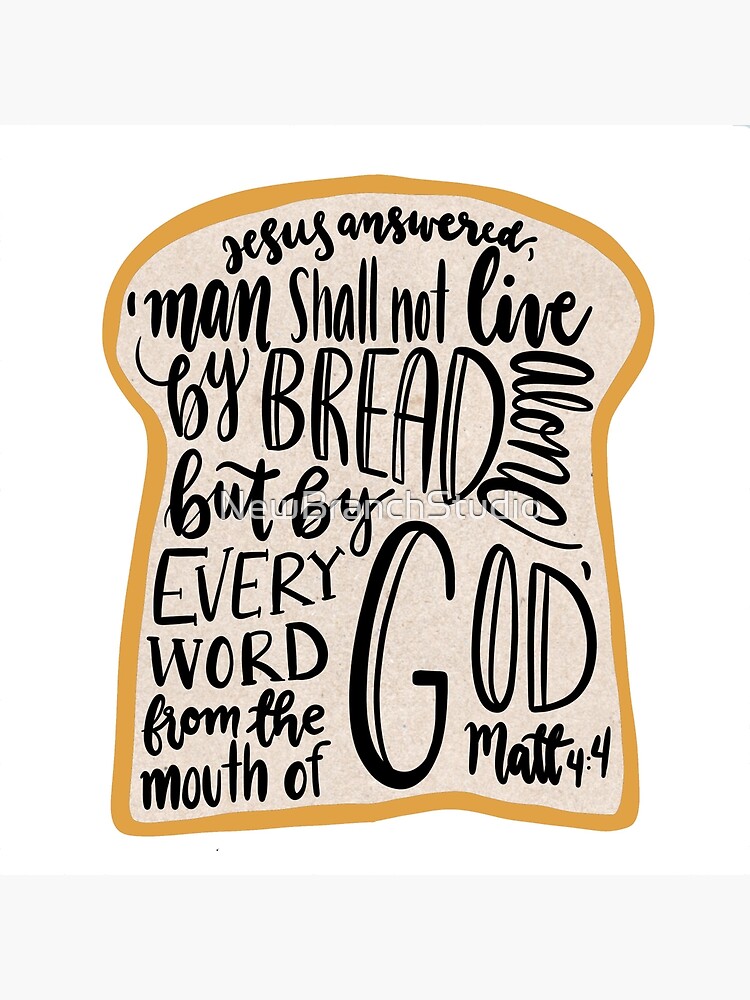 Jesus answered,
'man shall not live
by BREAD alone
but by
EVERY
WORD
from the
mouth of
GOD'
Matt 4:4
NewBranchStudio